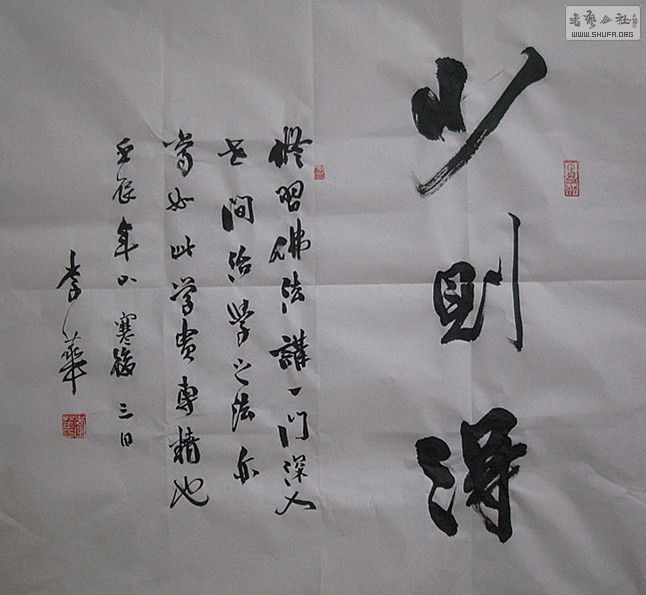 少则得
修習佛法講一门深入
世间治學之法亦
当如此学贵專精也
壬辰年小寒後三日
李華
書藝公社
WWW.SHUFA.ORG